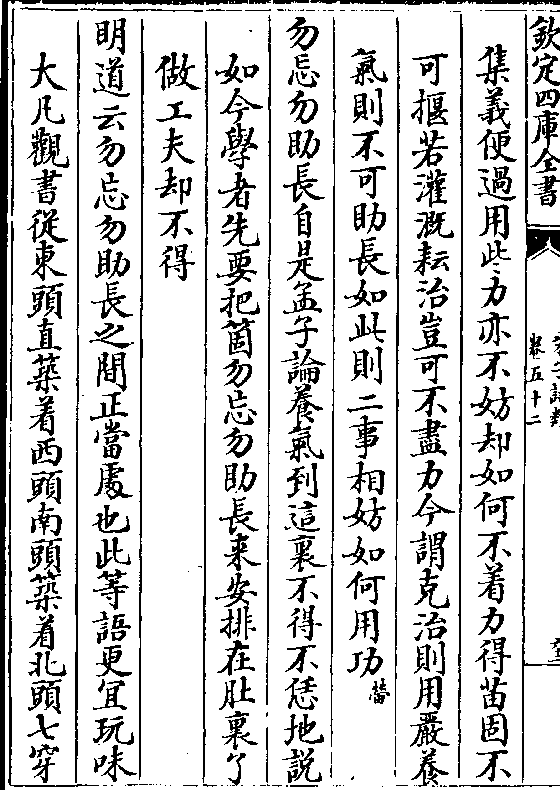 欽定四庫全書
卷五十二
集義便過用些力亦不妨却如何不着力得苗固不
可揠若灌溉耘治豈可不盡力今謂克治則用嚴養
氣則不可助長如此則二事相妨如何用功㽦
勿忘勿助長自是孟子論養氣到這裏不得不恁地說
如今學者先要把箇勿忘勿助長来安排在肚裏了
做工夫却不得
明道云勿忘勿助長之間正當處也此等語更宜玩味
大凡觀書從東頭直築着西頭南頭築着北頭七穿